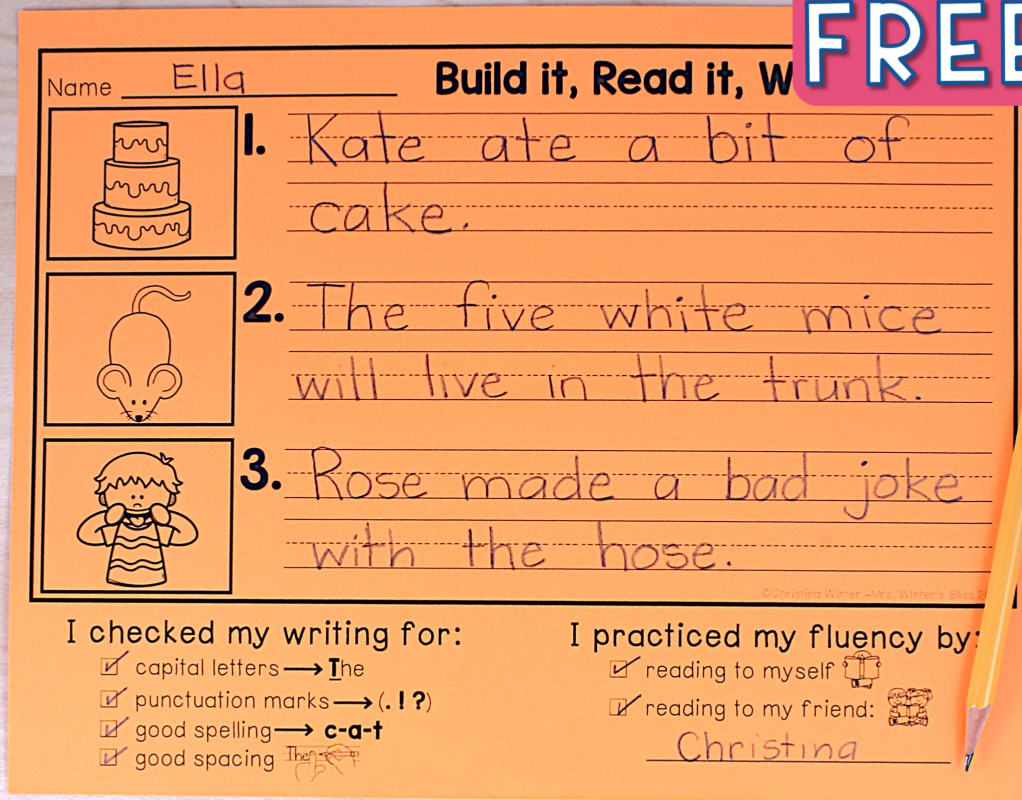 FREE
Name Ella
Build it, Read it, W
1. Kate ate a bit of
cake.
2. The five white mice
will live in the trunk.
3. Rose made a bad joke
with the hose.
©Christina Winter -Mrs. Winter's Bliss
I checked my writing for:
capital letters → The
punctuation marks → (. ! ?)
good spelling → c-a-t
good spacing The
I practiced my fluency by:
reading to myself
reading to my friend:
Christina